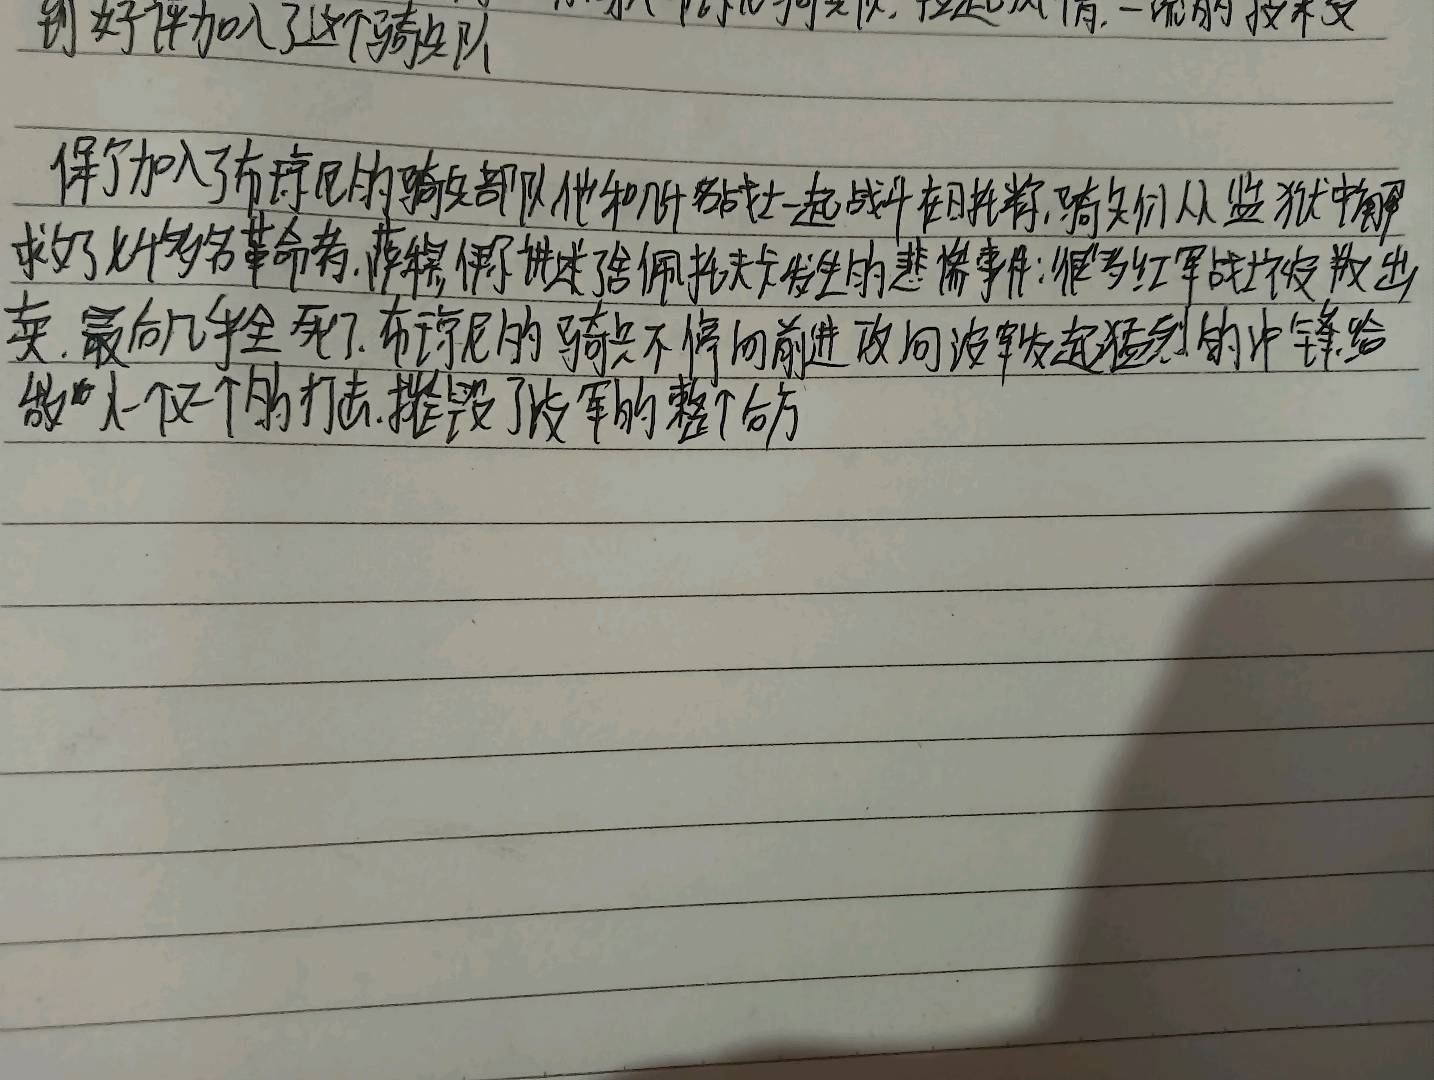 一流的技术受
到好评加入了这个骑兵队
保尔加入了布琼尼的骑兵部队他和几千名战士一起战斗在日托将,骑兵们从监狱中解
求女了 多名革命者,萨 伊尔讲述了舍佩托夫卡发生的悲惨事件:很多红军战士被 出
卖.最后几乎全死了.布琼尼的骑兵不停向前进攻向波军发起猛烈的冲锋,给
敌人一个又一个的打击.摧毁了波军的整个后方